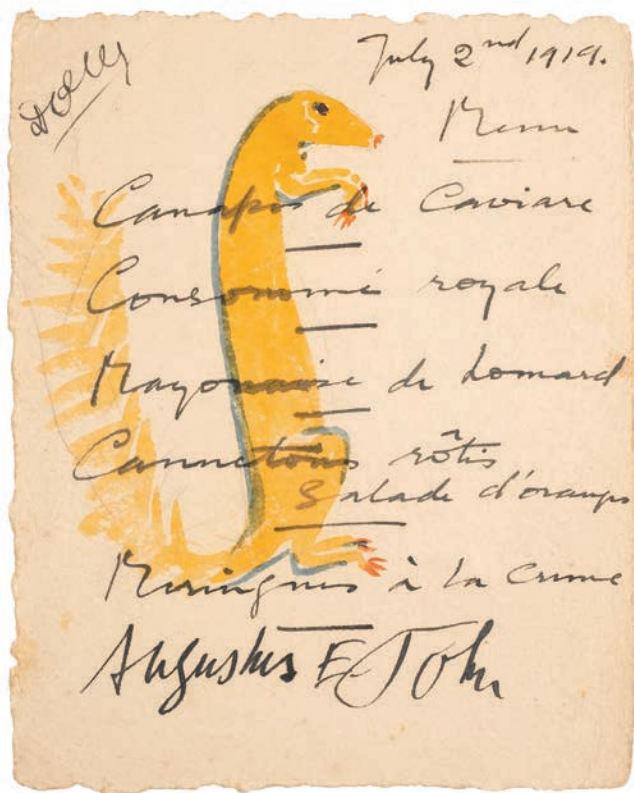 Dolly
July 2nd 1919.
Menu
Canapes de Caviare
Consommé royale
Mayonaise de homard
Cannetons rôtis
Salade d'oranges
Meringues à la Creme
Augustus E John